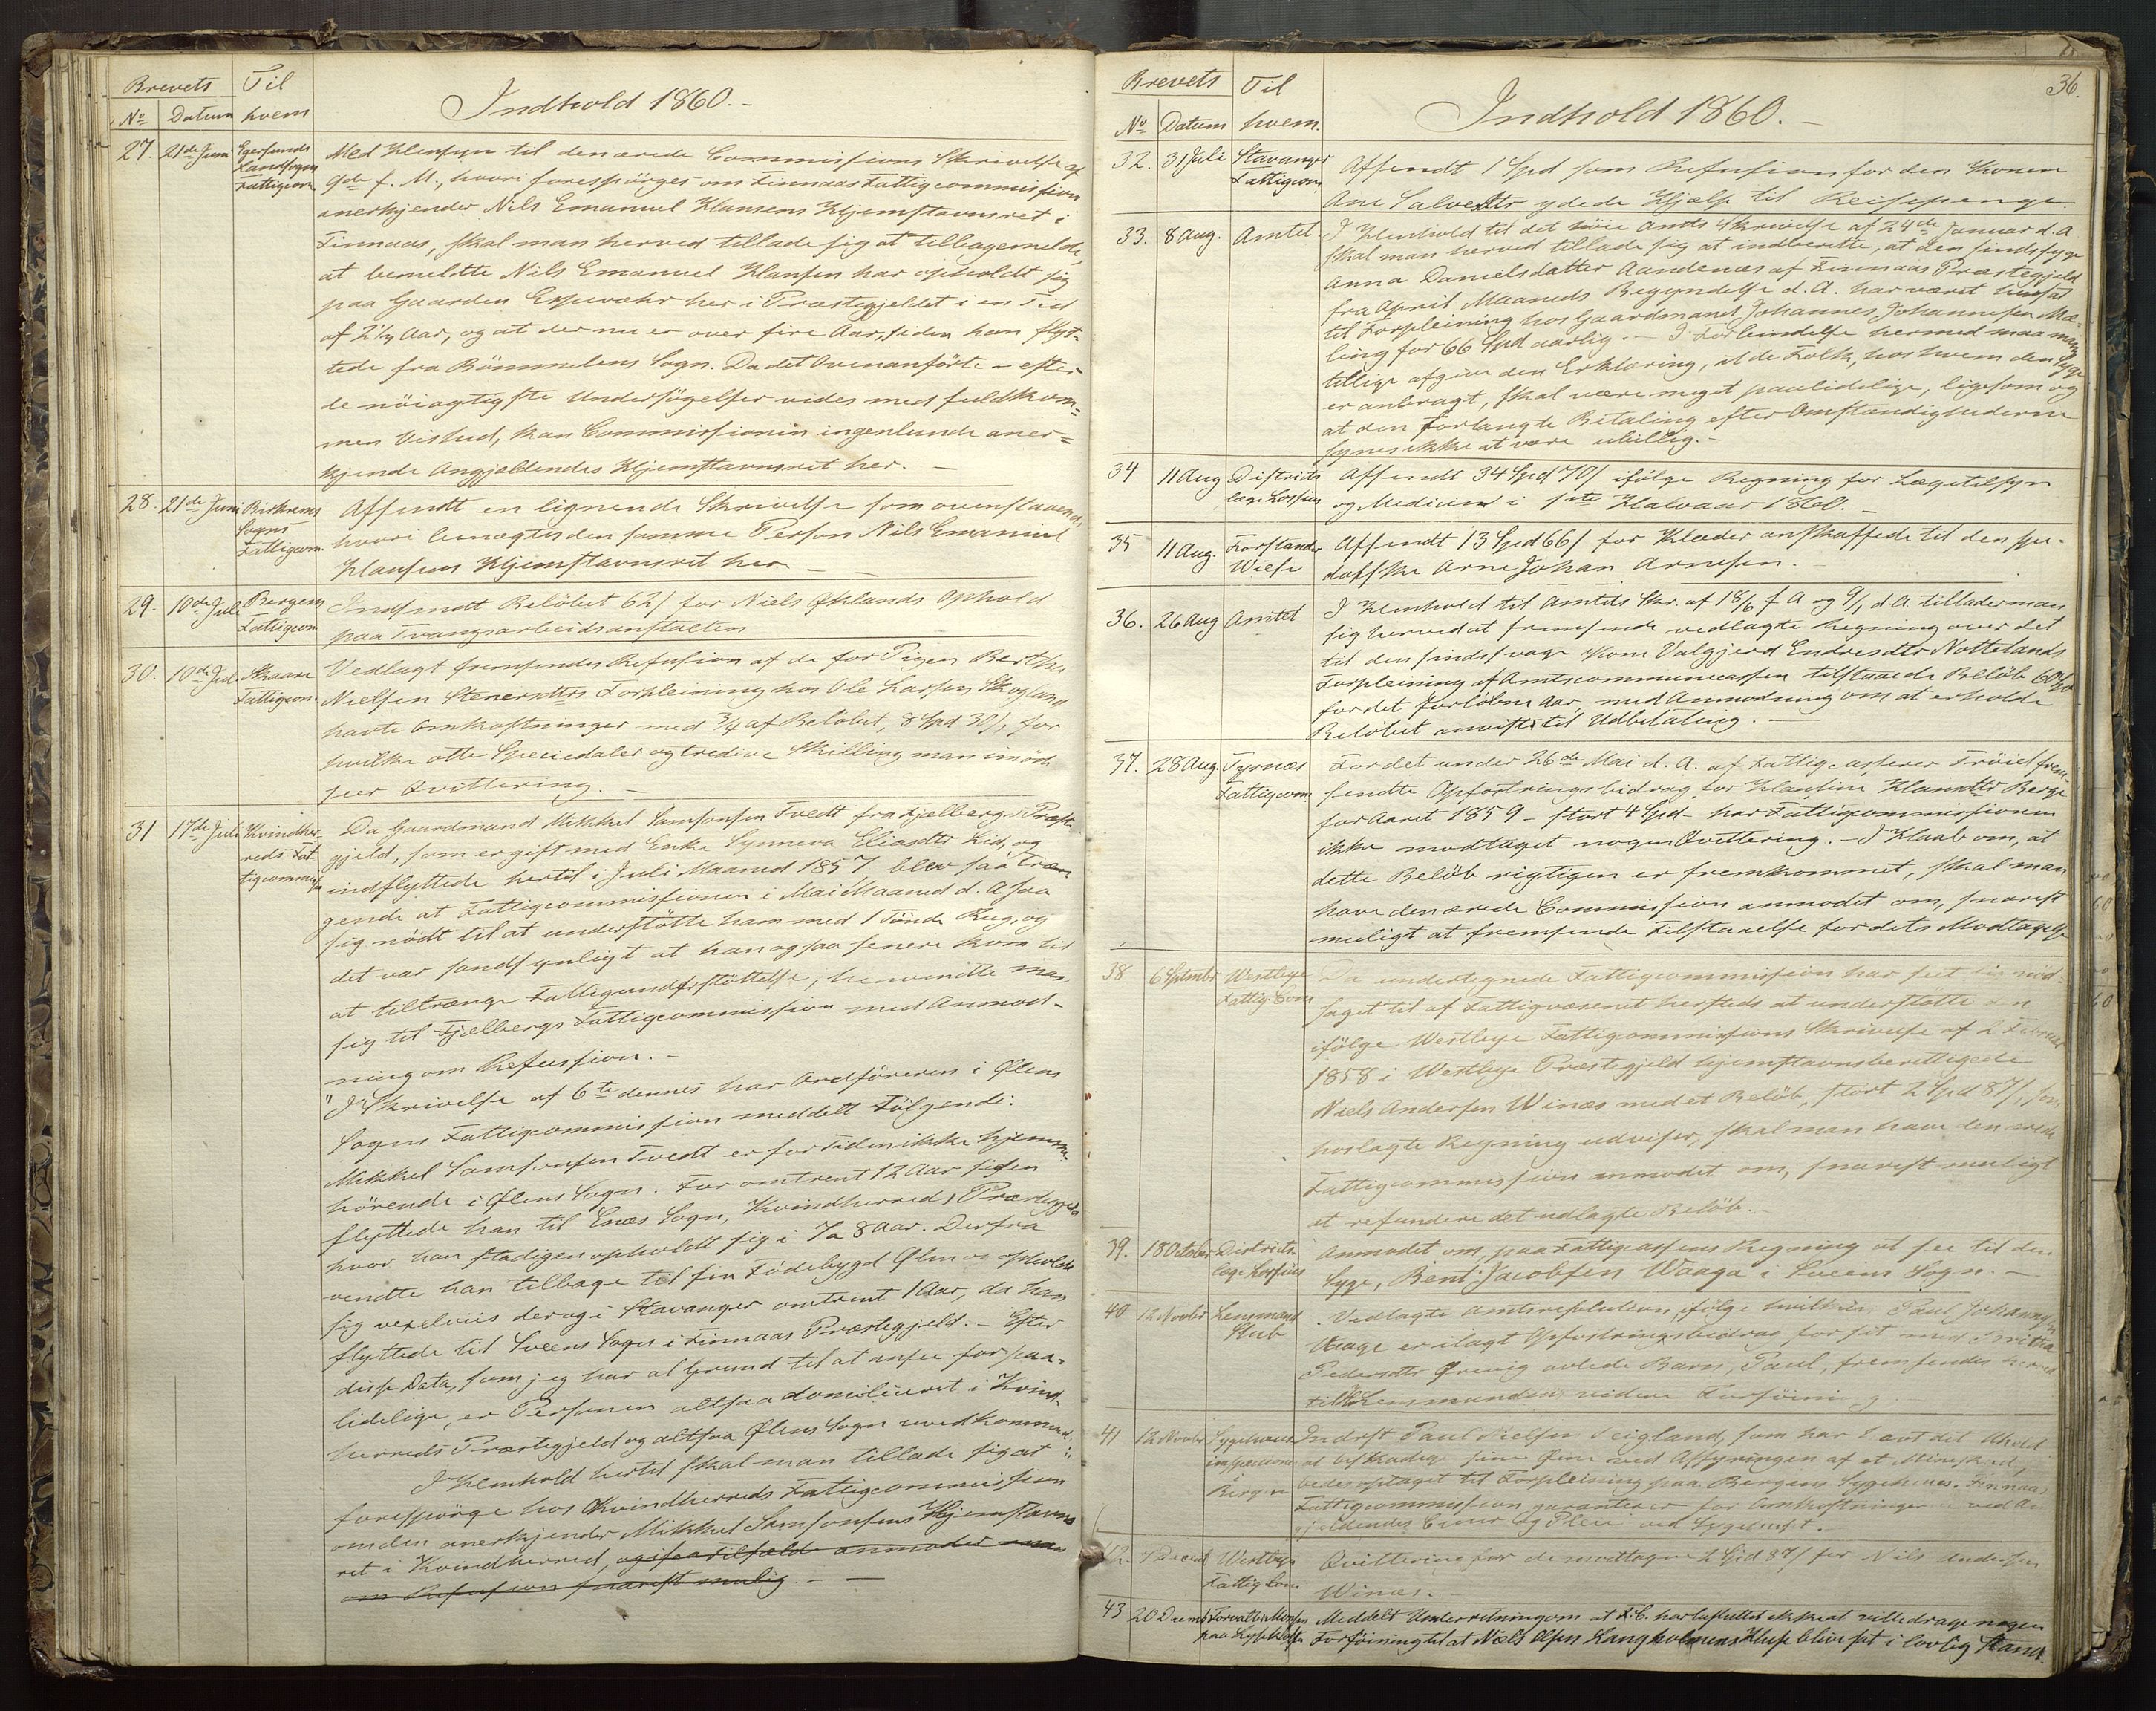 Brevets Til
No Datum hvem
Indhold 1860.-
27. 21de Juni Egersunds Landsogns Fattigcom.
Med Hensyn til den ærede Commissions Skrivelse af
9de f. M., hvori forespörges om Finnaas Fattigcommission
anerkjender Nils Emanuel Hansens Hjemstavnsret i
Finnaas, skal man herved tillade sig at tilbagemelde,
at bemeldte Nils Emanuel Hansen har opholdt sig
paa Gaarden Espevær her i Præstegjeldet i en Tid
af 2½ Aar, og at der nu er over fire Aar, siden han flyt-
tede fra Bömmelens Sogn. Da det Ovenanförte - efter
de nöiagtigste Undersögelser vides med fuldkom-
men Vished, kan Commissionen ingenlunde aner-
kjende Angjældendes Hjemstavnsret her. -
28. 21de Juni Birkrems Sogns Fattigcom.
Afsendt en lignende Skrivelse som ovenstaaende,
hvori benægtes den samme Person Nils Emanuel
Hansens Hjemstavnsret her -
29. 10de Juli Bergens Fattigcom
Indsendt Belöbet 62 / for Niels Öklands Ophold
paa Tvangsarbeidsanstalten
30. 10de Juli Skaare Fattigcom.
Vedlagt fremsendes Refusion af de for Pigen Berthe
Nielsen Stenersdtrs Forpleining hos Ole Larsen Skogland
havte Omkostninger med ¾ af Belöbet, 8 Spd 30 /, for
hvilke otte Speciedaler og tredive Skilling man imöde-
seer Qvittering. -
31 17de Juli Kvindher-
reds Fat-
tigcommission
Da Gaardmand Mikkel Samsonsen Tvedt fra Fjelbergs Præste-
gjeld, som er gift med Enke Synneva Eliasdtr Lid, og
indflyttede hertil i Juli Maaned 1857 blev saa træn-
gende at Fattigcommissionen i Mai Maaned d. A. saa
sig nödt til at understötte ham med 1 Tönde Rug, og
det var sandsynligt at han ogsaa senere kom til
at tiltrænge Fattigunderstöttelse, henvendte man
sig til Fjelbergs Fattigcommission med Anmod-
ning om Refusion. -
"I Skrivelse af 6te dennes har Ordföreren i Ölens
Sogns Fattigcommission meddelt Fölgende:
Mikkel Samsonsen Tvedt er for Tiden ikke hjemme-
hörende i Ölens Sogn. For omtrent 12 Aar siden
flyttede han til Enæs Sogn, Kvindherreds Præstegjeld
hvor han stadigen opholdt sig i 7 a 8 Aar. Derfra
vendte han tilbage til sin Födebygd Ölen og opholdt
sig vexelviis der og i Stavanger omtrent 1 Aar, da han
flyttede til Sveens Sogn i Finnaas Præstegjeld. - Efter
disse Data, som jeg har al Grund til at ansee for paa-
lidelige, er Personen altsaa domicileret i Kvind-
herreds Præstegjeld og altsaa Ölens Sogn uvedkommende:"
I Henhold hertil skal man tillade sig at
forespörge hos Kvindherreds Fattigcommission
om den anerkjender Mikkel Samsonsens Hjemstavns-
ret i Kvindherred, og i saa tilfælde anmoder man
om Refusion snarest mulig. -
36.
Brevets Til
No Datum hvem.
Indhold 1860. -
32. 31 Juli Stavanger Fattigcom
Afsendt 1 Spd som Refusion for den Konen
Ane Salvesdtr ydede Hjælp til Reisepenge.
33. 8 Aug. Amtet
I Henhold til det höie Amts Skrivelse af 24de Januar d. A
skal man herved tillade sig at indberette, at den sindssyge
Anna Danielsdatter Aandenæs af Finnaas Præstegjeld
fra April Maaneds Begyndelse d. A. har været hensat
til Forpleining hos Gaardmand Johannes Johannesen Mæ-
ling for 66 Spd aarlig. - I Forbindelse hermed maa man
tillige afgive den Erklæring, at de Folk, hos hvem den Syge
er anbragt, skal være meget paalidelige, ligesom og
at den forlangte Betaling efter Omstændighederne
synes ikke at være ubillig. -
34 11 Aug Districts læge Lossius
Afsendt 34 Spd 70 / ifölge Regning for Lægetilsyn
og Medicin i 1ste Halvaar 1860. -
35 11 Aug. Forstander Wiese
Afsendt 13 Spd 66 / for Klæder anskaffede til den spe-
dalske Arne Johan Arnesen. -
36. 26 Aug Amtet
I Henhold til Amtets Skr. af 18/6 f A og 9/1 d A. tillader man
sig herved at fremsende vedlagte Regning over det
til den sindssvage Kone Valgjerd Endresdtr Nottelands
Forpleining af Amtscommunecassen tilstaaede Belöb 60 Spd
for det forlöbne Aar, med Anmodning om at erholde
Belöbet anvist til Udbetaling. -
37. 28 Aug. Tysnæs Fattigcom
For det under 26de Mai d. A. af Fattigcasserer Tröie frem-
sendte Opfostringsbidrag for Hansine Hansdtr Berge
for Aaret 1859 - stort 4 Spd - har Fattigcommissionen
ikke modtaget nogen Qvittering. - I Haab om, at
dette Belöb rigtigen er fremkommet, skal man
have den ærede Commission anmodet om, snarest
muligt at fremsende Tilstaaelse for dets Modtagelse
38 6 Septmbr Westbye Fattig-Com
Da undertegnede Fattigcommission har seet sig nöd-
saget til af Fattigvæsenet hersteds at understötte den
ifölge Westbye Fattigcommissions Skrivelse af 2 Februar
1858 i Westbye Præstegjeld hjemstavnsberettigede
Niels Andersen Winæs med et Belöb, stort 2 Spd 87 /, som
hoslagte Regning udviser, skal man have den ærede
Fattigcommission anmodet om, snarest muligt
at refundere det udlagte Belöb.
39. 18 October Districts- læge Lossius
Anmodet om, paa Fattigcassens Regning at see til den
Syge, Bent Jacobsen Waage i Sveens Sogn. -
40 12 Novbr Lensmand Stub
Vedlagte Amtsresolution, ifölge hvilken Paul Johannesen
Waage er ilagt Opfostringsbidrag for sit med
Pedersdtr avlede Barn, Paul, fremsendes herved
til Lensmandens videre Forföining
41 12 Novbr Sygehuus inspecteuren i Bergen
Inderst Paul Nielsen, som har havt det Uheld
at beskadige sine Öine ved Affyringen af et Mineskud,
bedes optaget til Forpleining paa Bergens Sygehuus. Finnaas
Fattigcommission garanterer for Omkostningerne ved An-
gjeldendes Cuur og Pleie ved Sygehuset.
42. 7 Decmb Westbye Fattig Com.
Qvittering for de modtagne 2 Spd 87 / for Nils Andersen
Winæs.
43 20 Decmb Forvalter Monsen paa Lysekloster
Meddelt Underretning om at F. C. har besluttet ikke at ville drage nogen
Forföining til at Niels Olsen Langholmens Huse blive sat i lovlig Stand.